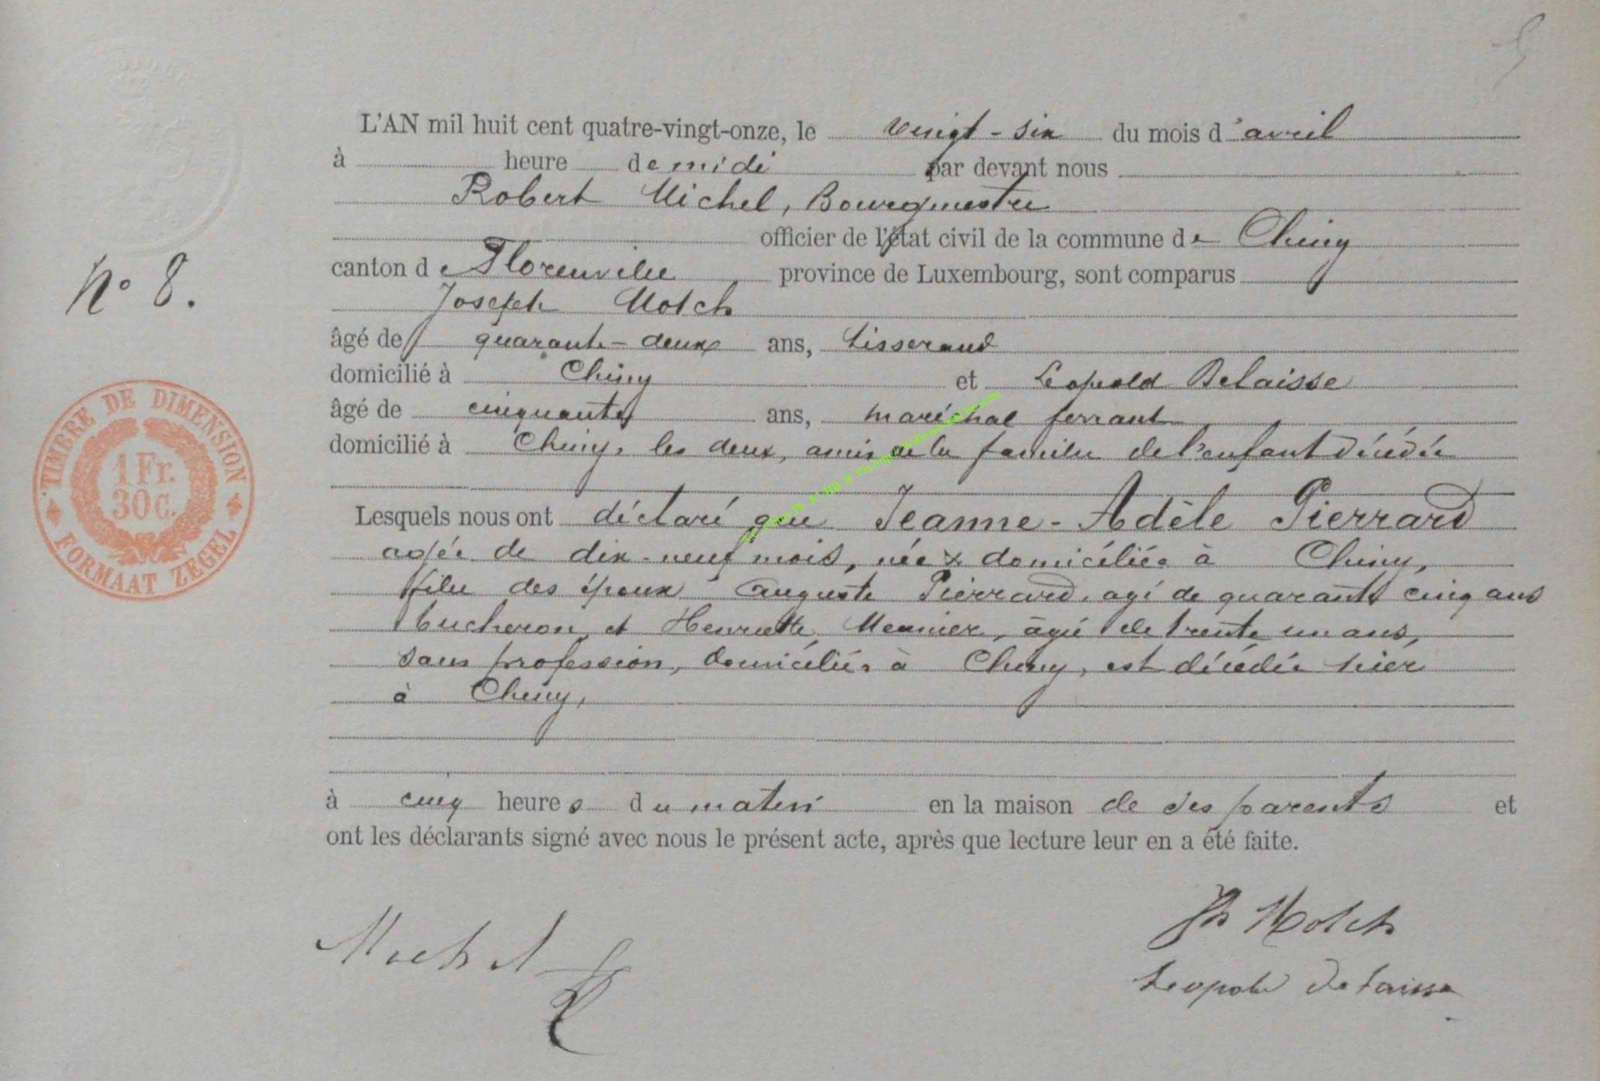 5
L'AN mil huit cent quatre-vingt-onze, le vingt-six du mois d'avril
à heure de midi par devant nous
Robert Michel, Bourgmestre
officier de l'état civil de la commune de Chiny
canton de Florenville province de Luxembourg, sont comparus
N° 8.
Joseph Motch
âgé de quarante-deux ans, tisserand
domicilié à Chiny et Léopold Delaisse
âgé de cinquante ans, maréchal ferrant
domicilié à Chiny, les deux, amis de la famille de l'enfant décédée
TIMBRE DE DIMENSION
1 Fr.
30 C.
FORMAAT ZEGEL
Lesquels nous ont déclaré que Jeanne-Adèle Pierrard
agée de dix-neuf mois, née & domiciliée à Chiny,
fille des époux Auguste Pierrard, agé de quarante cinq ans
bucheron et Henriette Meunier, âgée de trente un ans,
sans profession, domiciliés à Chiny, est décédée hier
à Chiny,
à cinq heures du matin en la maison de ses parents et
ont les déclarants signé avec nous le présent acte, après que lecture leur en a été faite.
Jh Motch
Michel R
Léopold Delaisse